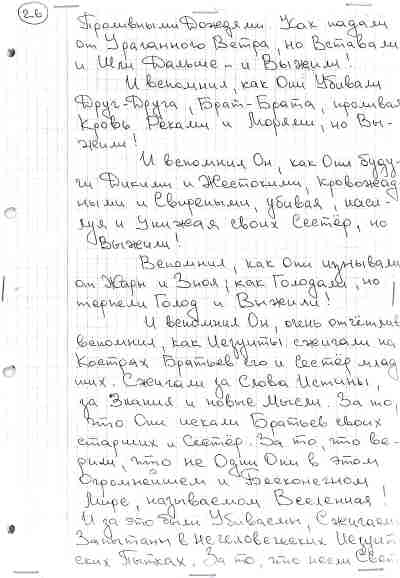 26
Проливными Дождями. Как падали
от Ураганного Ветра, но Вставали
и Шли Дальше – и Выжили!
И вспомнил, как Они Убивали
Друг-Друга, Брат-Брата, проливая
Кровь Реками и Морями, но Вы-
жили!
И вспомнил Он, как Они буду-
чи Дикими и Жестокими, Кровожад
ными и Свирепыми, убивая, наси-
луя и Унижая своих Сестёр, но
Выжили!
Вспомнил, как Они изнывали
от Жары и Зноя, как Голодали, но
терпели Голод и Выжили!
И вспомнил Он, очень отчётлив
вспомнил, как Иезуиты сжигали на
Кострах Братьев его и Сестёр млад
ших. Сжигали за Слова Истины,
за Знания и новые Мысли. За то,
что Они искали Братьев своих
старших и Сестёр. За то, что ве-
рили, что не Одни Они в этом
Огромнейшем и Бесконечном
Мире, называемом Вселенная!
И за это были Убиваемы, Сжигаем
Запытаны в нечеловеческих Иезуит
ских Пытках. За то, что несли Свет